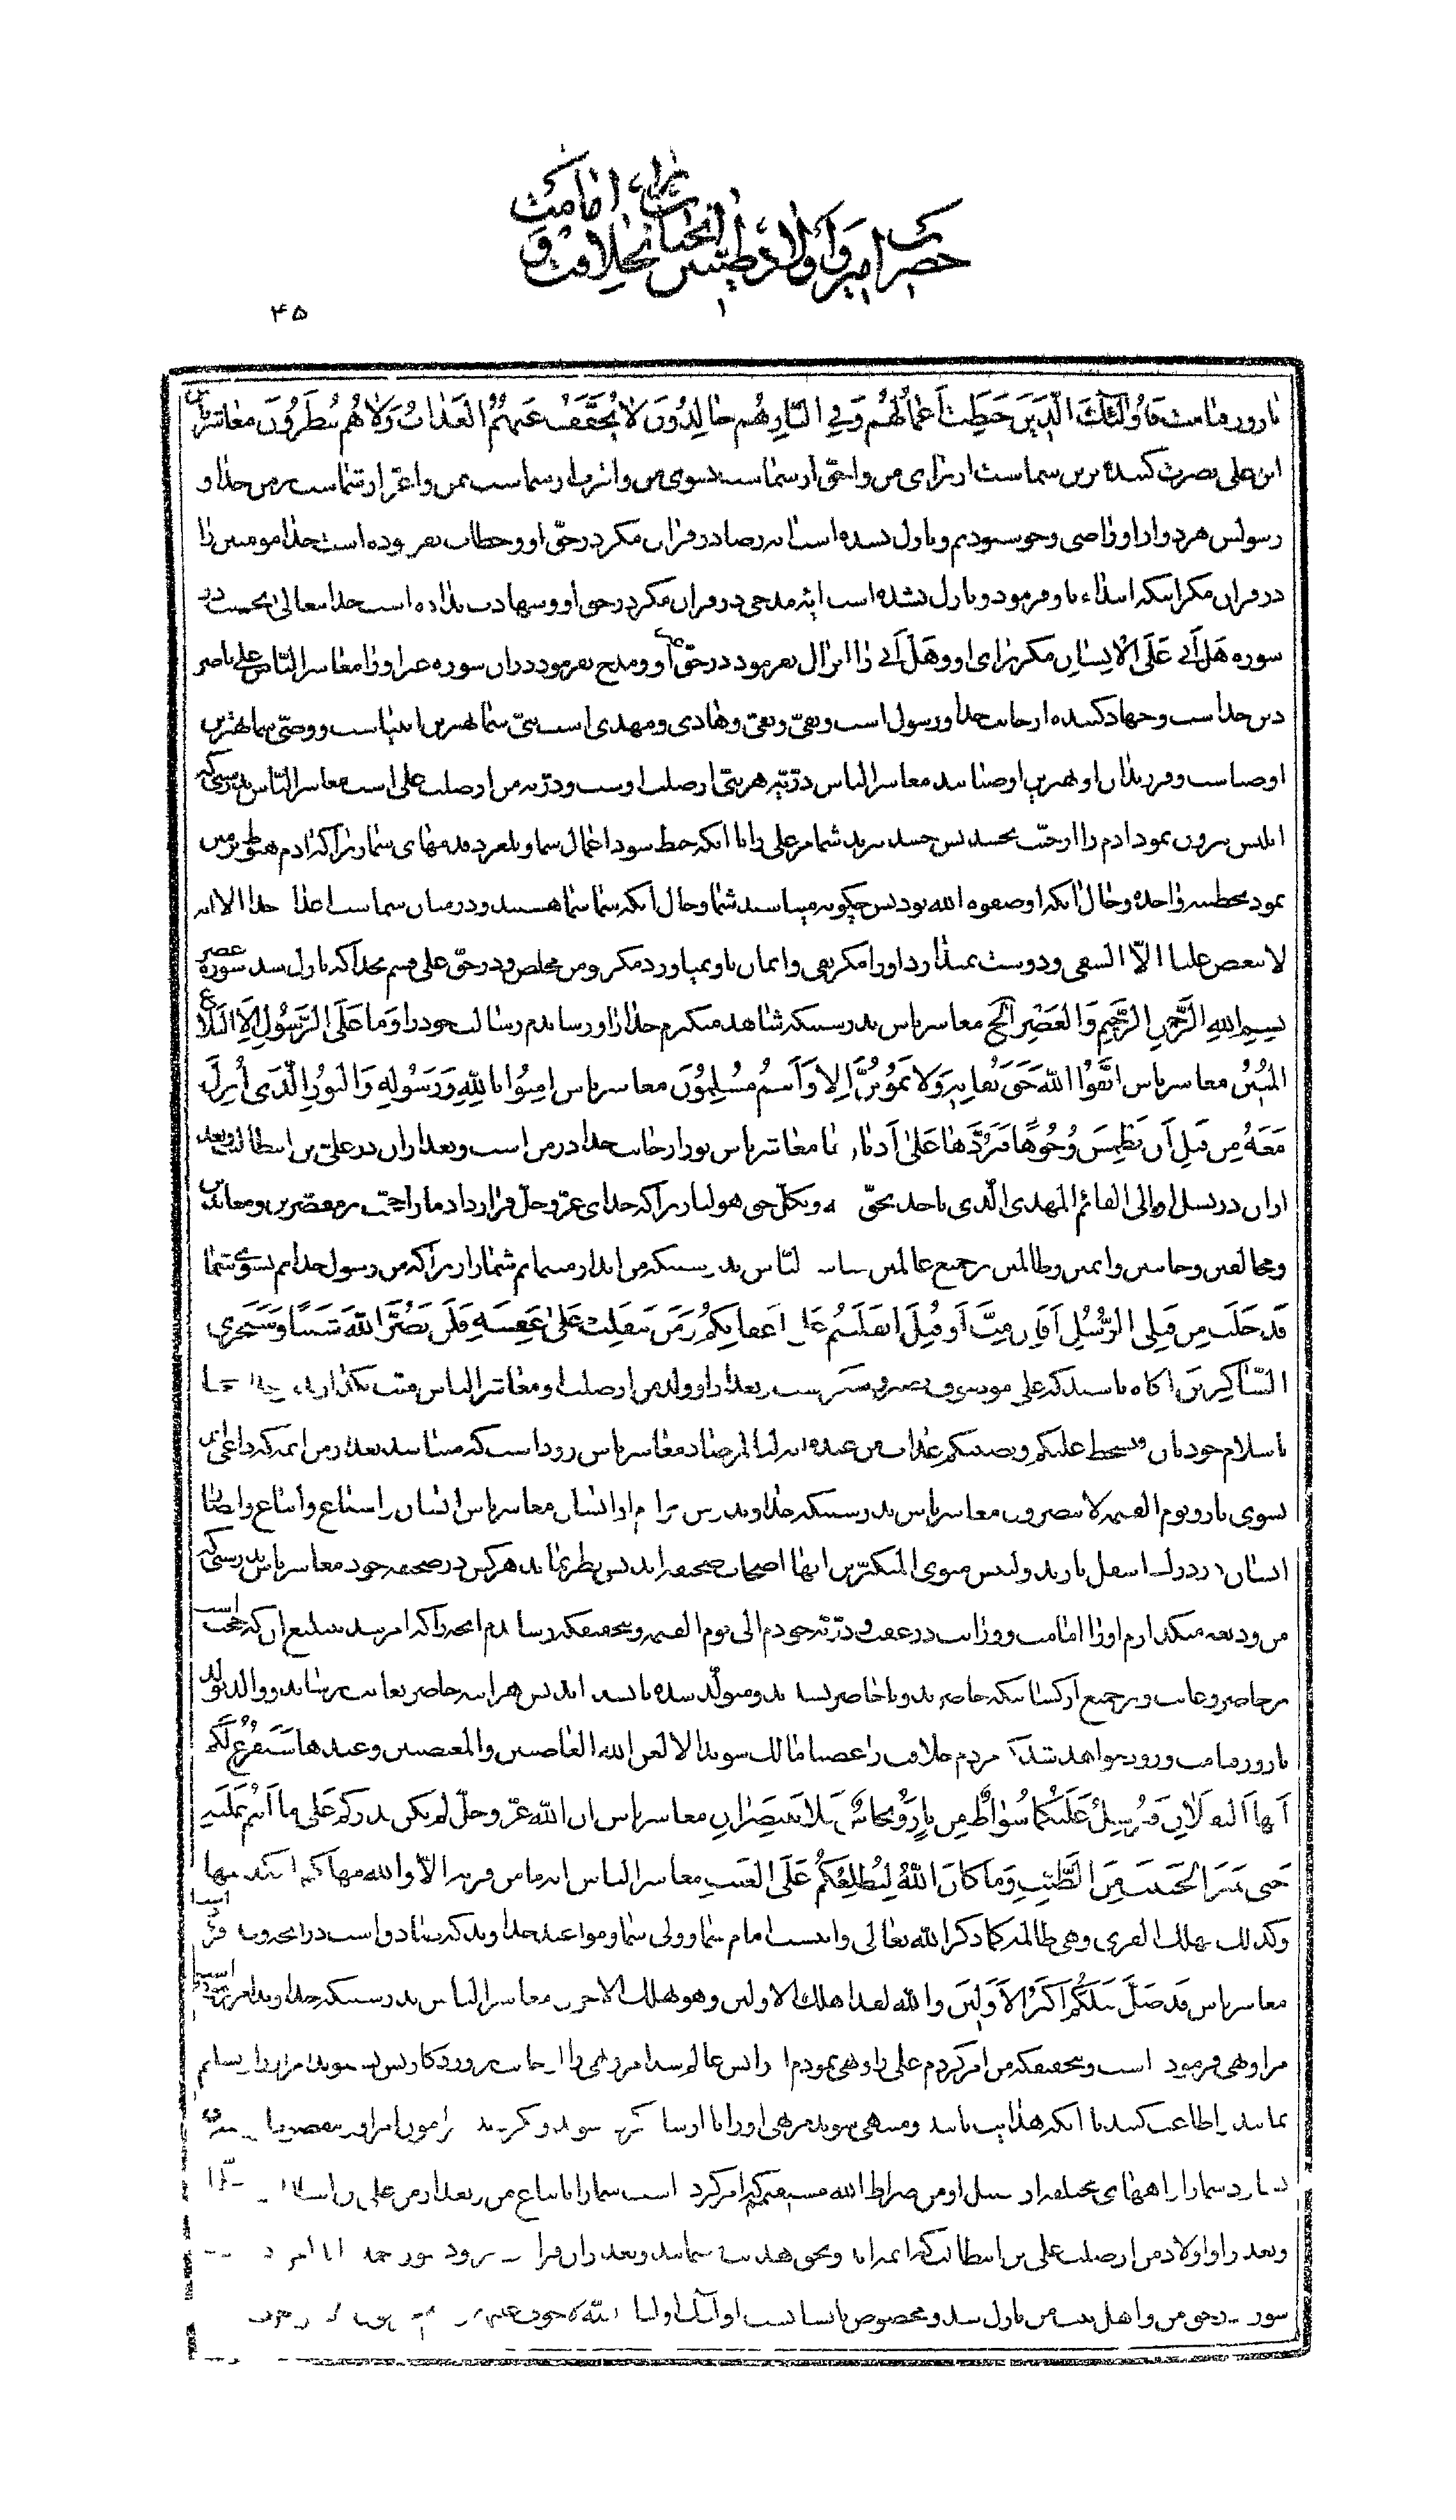 امامت
حضرت امیر و اولاد طیبین انجناب بخلافت و
۴۵
تا روز قیامت فاولئک الذین حبطت اعمالهم وفی النار هم خالدون لا یخفف عنهم العذاب ولا هم ینظرون معاشر ناس
این علی نصرت کننده ترین شماست از برای من و احق از شماست بسوی من و اقرب از شماست بمن و اعز از شماست بر من خدا و
رسولش هر دو از او راضی و خوشنودیم و نازل نشده است ایه رضا در قران مگر در حق او و خطاب نفرموده است خدا مومنین را
در قران مگر اینکه ابتداء باو فرمود و نازل نشده است ایه مدحی در قران مگر در حق او و شهادت نداده است خدا تعالی بجنت در
سوره هل اتی علی الانسان مگر برای او و هل اتی را انزال نفرمود در حق غیر او و مدح نفرمود در ان سوره غیر او را معاشر الناس علی ناصر
دین خداست و جهاد کننده از جانب خدا و رسول است و تقی و نقی و هادی و مهدی است نبی شما بهترین انبیاست و وصی شما بهترین
اوصیاست و فرزندان او بهترین اوصیااند معاشر الناس ذریه هر نبی از صلب اوست و ذریه من از صلب علی است معاشر الناس بدرستی که
ابلیس بیرون نمود ادم را از جنت بحسد پس حسد نبرید شما مر علی را تا انکه حبط شود اعمال شما و بلغزد قدمهای شما زیرا که ادم هبوط بر زمین
نمود بخطیئه واحده و حال انکه او صفوه الله بود پس چگونه میباشید شما و حال انکه شما شما هستید و در میان شماست اعداء خدا الا انه
لا یبغض علیا الا الشقی و دوست نمیدارد او را مگر تقی و ایمان باو نمیاورد مگر مومن مخلص و در حق علی قسم بخدا که نازل شد سوره عصر
بسم الله الرحمن الرحیم والعصر الخ معاشر ناس بدرستیکه شاهد میگیرم خدا را و رساندم رسالت خود را وما علی الرسول الا البلاغ
المبین معاشر ناس اتقوا الله حق تقاته ولا تموتن الا وانتم مسلمون معاشر ناس امنوا بالله ورسوله والنور الذی انزل
معه من قبل ان نطمس وجوها فنردها علی ادبارها معاشر ناس نور از جانب خدا در من است و بعد از ان در علی بن ابیطالب و بعد
از ان در نسل او الی القائم المهدی الذی یاخذ بحق و بکل حق هو لنا زیرا که خدای عز و جل قرار داد ما را حجت بر مقصرین و معاندین
و مخالفین و خائنین و اثمین و ظالمین از جمیع عالمین الناس بدرستیکه من انذار مینمایم شما را زیرا که من رسول خدایم بسوی شما
قد خلت من قبلی الرسل افان مت او قتلت انقلبتم علی اعقابکم ومن ینقلب علی عقبیه فلن یضر الله شیئا وسیجزی
الشاکرین اگاه باشید که علی موصوف بصبر و شکر است بعد از او ولد من از صلب او معاشر الناس منت نگذارید
باسلام خودتان فیسخط علیکم ویصیبکم بعذاب من عنده انه لبالمرصاد معاشر ناس زود است که میباشند بعد از من ائمه که داعی اند
بسوی نار ویوم القیمه لا ینصرون معاشر ناس بدرستیکه خدا و من بری هستیم از ایشان معاشر ناس ایشان و اشیاع و اتباع و انصار
ایشان در درک اسفل نارند ولبئس مثوی المتکبرین انها اصحاب صحیفه اند پس نظر نماید هر کس در صحیفه خود معاشر ناس بدرستی که
من ودیعه میگذارم او را امامت و وراثت در عقب و ذریه خودم الی یوم القیمه و بتحقیق که رساندم انچه را که امر شدم بتبلیغ ان که حجت است
بر حاضر و غائب و بر جمیع از کسانیکه حاضرند و یا حاضر نیستند و متولد شده یا نشده اند پس هر اینه حاضر بغائب برساند و والد بولد
تا روز قیامت و زود خواهد شد که مردم خلافت را غصبا مالک شوند الا لعن الله الغاصبین والمغتصبین وعندها سنفرغ لکم
ایها الثقلان ویرسل علیکما شواظ من نار ونحاس فلا تنتصران معاشر ناس ان الله عز و جل لم یکن یذرکم علی ما انتم علیه
حتی یمیز الخبیث من الطیب وما کان الله لیطلعکم علی الغیب معاشر الناس انه ما من قریه الا والله مهلکها بتکذیبها
وکذلک یهلک القری وهی ظالمه کما ذکر الله تعالی و اینست امام شما و ولی شما و مواعید خداوند که صادق است در انچه وعده فرموده است
معاشر ناس قد ضل قبلکم اکثر الاولین والله لقد اهلک الاولین وهو مهلک الاخرین معاشر الناس بدرستیکه خداوند امر نموده است
مرا و نهی فرموده است و بتحقیق که من امر کردم علی را و نهی نمودم او را پس عالم شد امر و نهی را از جانب پروردگار پس بشنوید امر او را تسلیم
نمائید اطاعت کنید تا انکه هدایت یابید و منتهی شوید مر نهی او را تا ارشاد شوید و گردید
شما را راههای مختلفه از سبیل او من صراط الله مستقیم که امر کرده است شما را باتباع من بعد از من علی راست
و بعد از او اولاد من از صلب علی بن ابیطالب که ائمه اند و بحق هدایت مینمایند و بعد از ان قرائت فرمود سوره حمد
سوره در حق من و اهل بیت من نازل شد و مخصوص بایشانست اولئک اولیاء الله